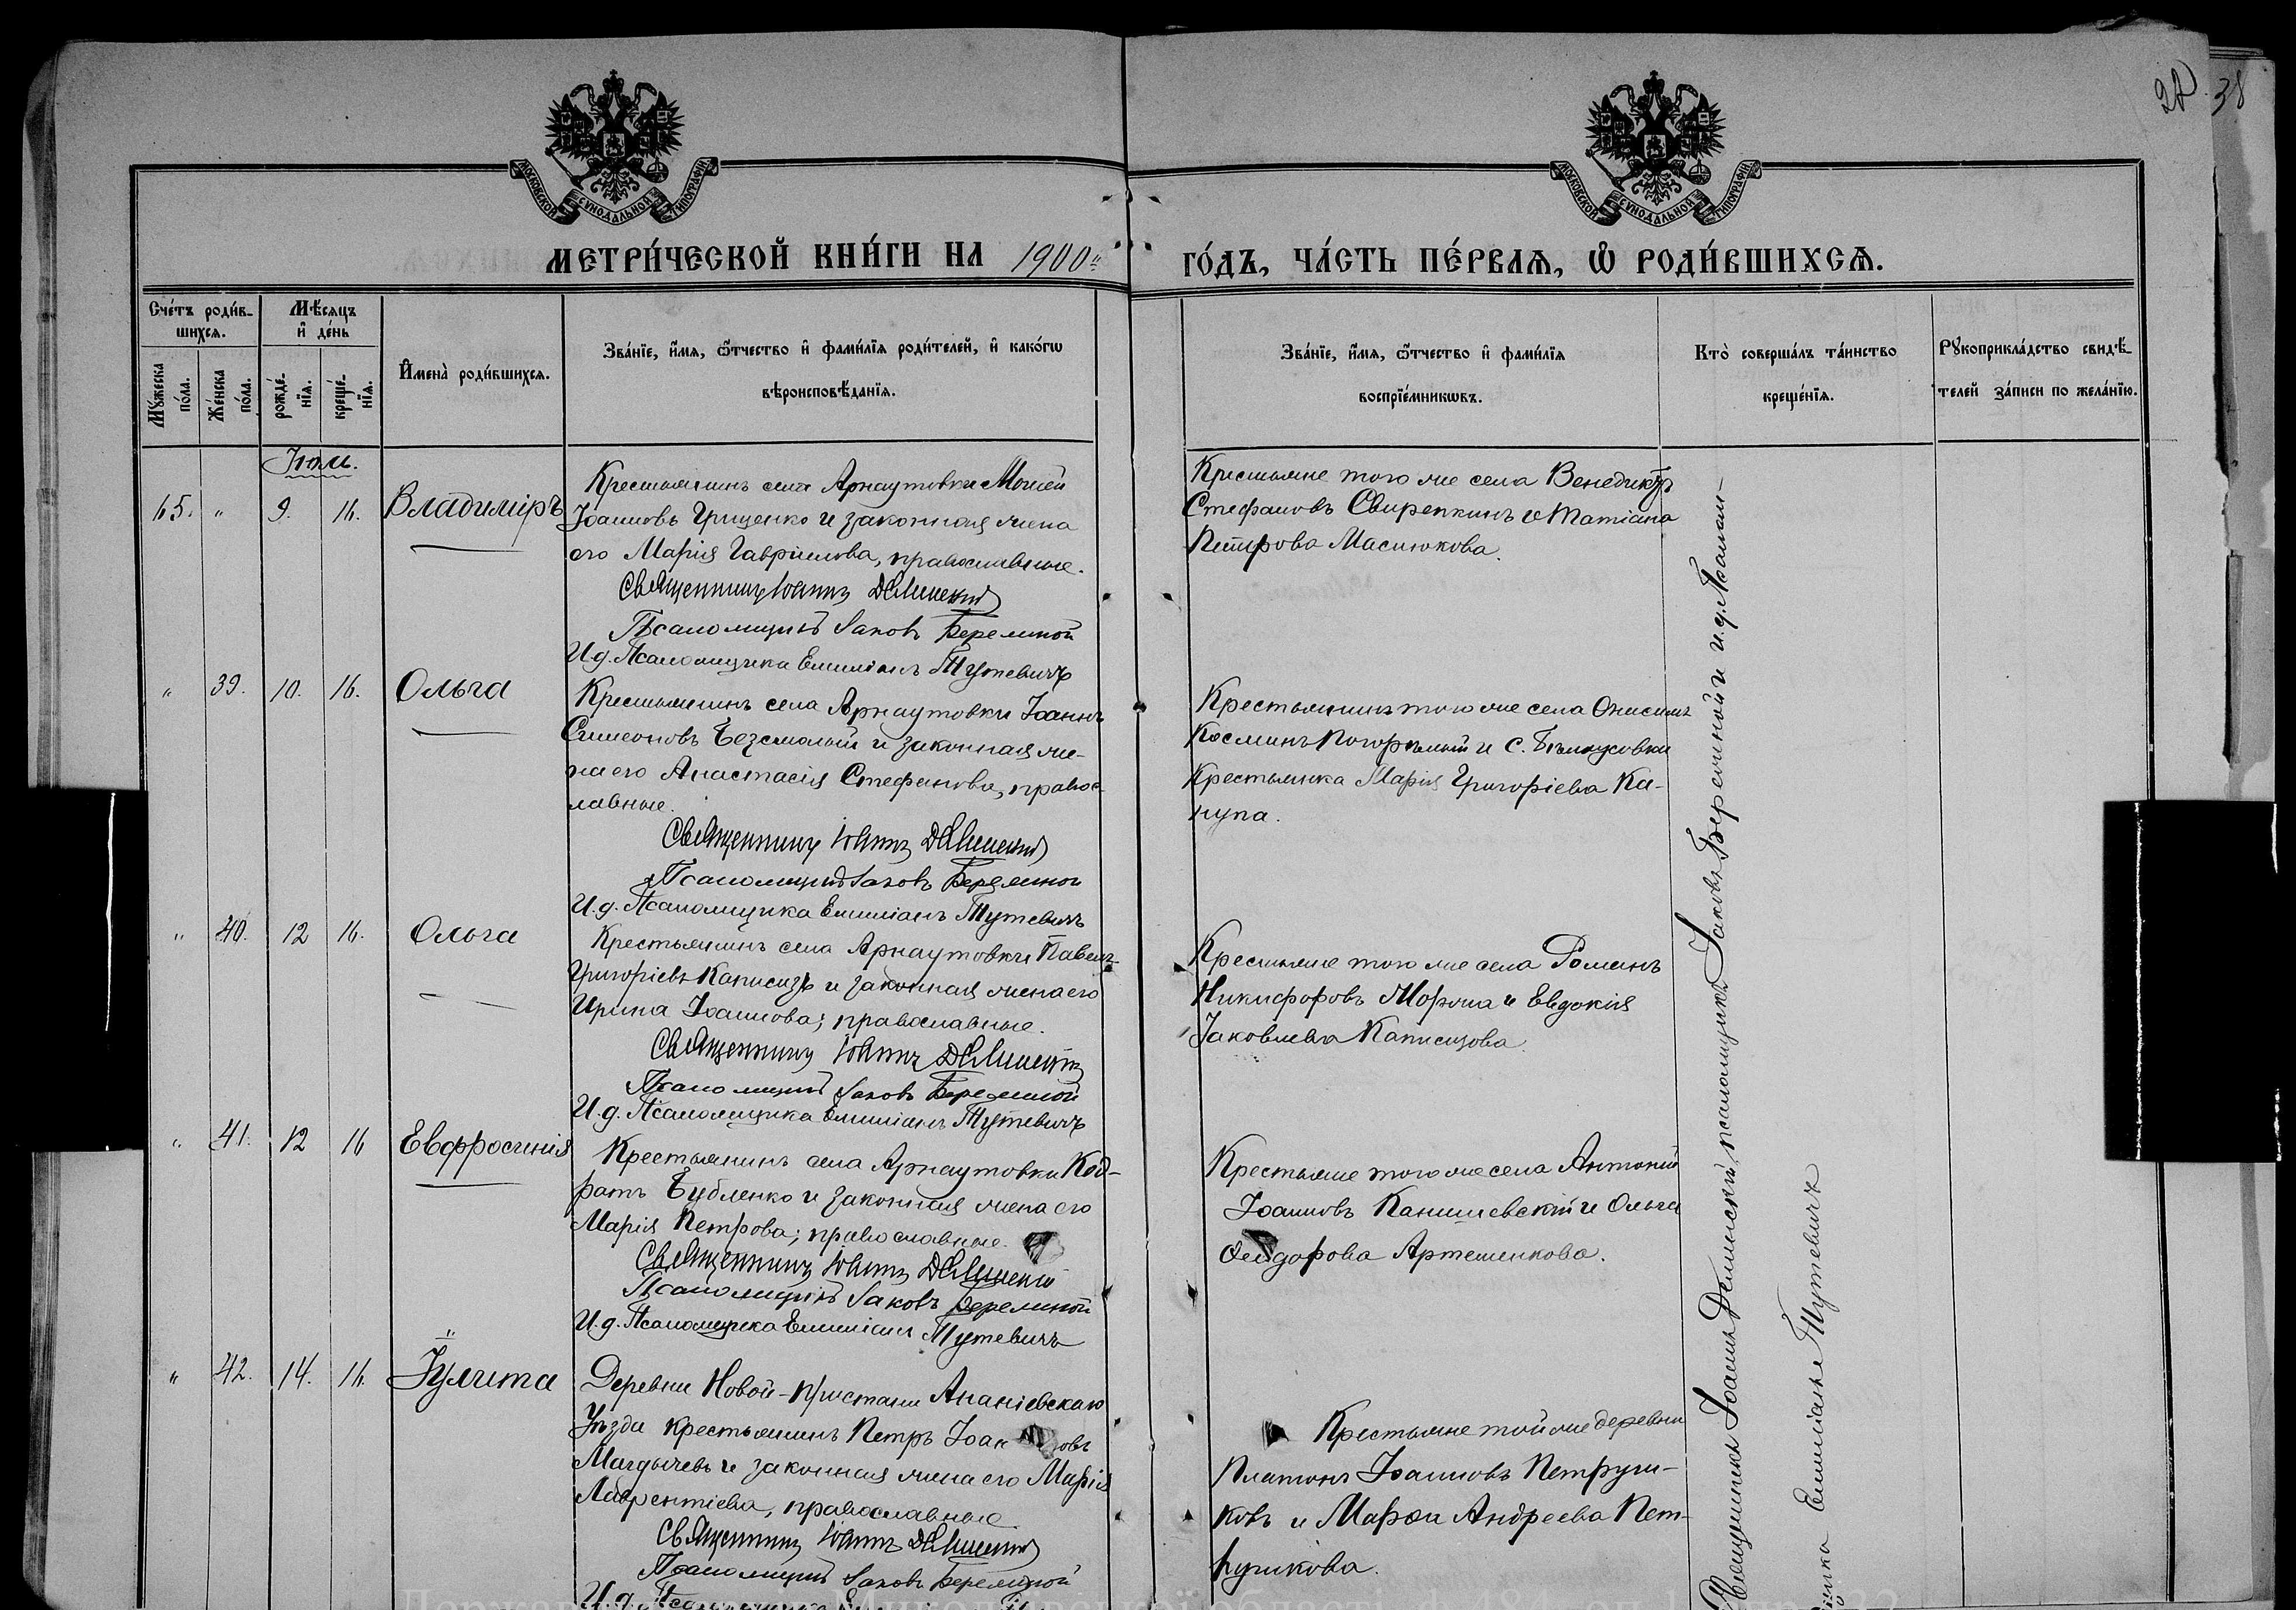 28. 38
МОСКОВСКОЙ СУНОДАЛЬНОЙ ТИПОГРАФІИ
МОСКОВСКОЙ СУНОДАЛЬНОЙ ТИПОГРАФІИ
МЕТРИ́ЧЕСКОЙ КНИ́ГИ НА 1900
ГО́ДЪ, ЧА́СТЬ ПЕ́РВАѦ, Ѡ РОДИ́ВШИХСѦ.
Сче́тъ роди́в-
шихсѧ.
Мѣ́сѧцъ
и де́нь
Мꙋ́жеска по́ла.
Же́нска по́ла.
рожде́-
нїѧ.
креще́-
нїѧ.
И҆мена̀ роди́вшихсѧ.
Зва́нїе, и҆́мѧ, ѻ҆́тчество и҆ фами́лїѧ роди́телей, и҆ како́гѡ
вѣроисповѣ́данїѧ.
Зва́нїе, и҆́мѧ, ѻ҆́тчество и҆ фами́лїѧ
воспрїе́мникѡвъ.
Кто̀ соверша́лъ та́инство
креще́нїѧ.
Рꙋкоприкла́дство свидѣ́-
телей за́писи по жела́нїю.
Іюль.
65. " 9. 16. Владиміръ
Крестьянинъ села Арнаутовки Моисей
Іоанновъ Грищенко и законная жена
его Марія Гавриилова, православные.
Священникъ Іоаннъ Делинскій
Псаломщикъ Іаковъ Бережной
И.д. Псаломщика Емиліанъ Тутевичъ
Крестьяне того же села Венедиктъ
Стефановъ Свирепкинъ и Татіана
Петрова Маснюкова.
" 39. 10. 16. Ольга
Крестьянинъ села Арнаутовки Іоаннъ
Симеоновъ Безсмолый и законная же-
на его Анастасія Стефанова, правос-
лавные.
Священникъ Іоаннъ Делинскій
Псаломщикъ Іаковъ Бережной
И.д. Псаломщика Емиліанъ Тутевичъ
Крестьянинъ того же села Онисимъ
Косминъ Погорѣлый и с. Бѣлоусовки
Крестьянка Марія Григоріева Ка-
нупа.
" 40. 12 16. Ольга
Крестьянинъ села Арнаутовки Павелъ
Григоріевъ Каписизъ и законная жена его
Ирина Іоаннова; православные.
Священникъ Іоаннъ Делинскій
Псаломщикъ Іаковъ Бережной
И.д. Псаломщика Емиліанъ Тутевичъ
Крестьяне того же села Романъ
Никифоровъ Моржа и Евдокія
Іаковлева Каписизова.
" 41. 12 16 Евфросинія
Крестьянинъ села Арнаутовки Код-
ратъ Бубленко и законная жена его
Марія Петрова; православные.
Священникъ Іоаннъ Делинскій
Псаломщикъ Іаковъ Бережной
И.д. Псаломщика Емиліанъ Тутевичъ
Крестьяне того же села Антоній
Іоанновъ Канишевскій и Ольга
Ѳеодорова Артеменкова.
" 42. 14. 16. Іулитта
Деревни Новой-Пристани Ананіевскаго
Уѣзда крестьянинъ Петръ
Магдычевъ и законная жена его Марія
Лаврентіева, православные.
Священникъ Іоаннъ Делинскій
Псаломщикъ Іаковъ Бережной
И.д. Псаломщика
Крестьяне той же деревни
Платонъ Іоанновъ Петруши-
ковъ и Марѳа Андреева Пет-
рушкова.
Священникъ Іоаннъ Делинскій, псаломщикъ Іаковъ Бережной и и.д. Псалом-
щика Емиліанъ Тутевичъ